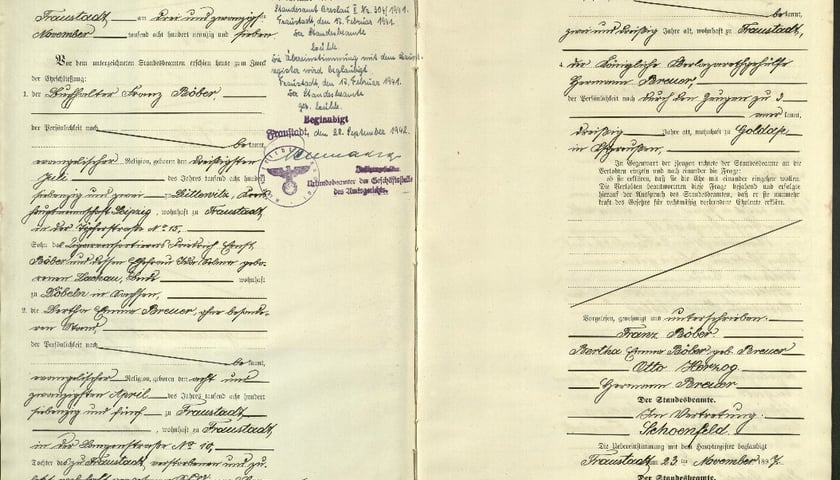 Fraustadt am drei und zwanzigsten
November tausend acht hundert neunzig und sieben.
Vor dem unterzeichneten Standesbeamten erschienen heute zum Zweck
der Eheschließung:
1. der Buchhalter Franz Böber,
der Persönlichkeit nach
bekannt,
evangelischer Religion, geboren den dreißigsten
Juli des Jahres tausend acht hundert
siebenzig und zwei zu
hauptmannschaft Leipzig, wohnhaft zu Fraustadt,
in der Töpferstraße No 15,
Sohn des Zigarrensortierers Friedrich Ernst
Böber und dessen Ehefrau Ida Selma gebo-
renen Lachau, beide wohnhaft
zu Döbeln in Sachsen,
2. die Bertha Emma Breuer, ohne besonde-
ren Stand,
der Persönlichkeit nach
bekannt,
evangelischer Religion, geboren den acht und
zwanzigsten April des Jahres tausend acht hundert
siebenzig und fünf zu Fraustadt
, wohnhaft zu Fraustadt,
in der Langenstraße No 10,
Tochter des zu Fraustadt verstorbenen und zu-
Standesamt Breslau II Nr. 304/1941.
Fraustadt, den 17. Februar 1941.
Der Standesbeamte
Die Übereinstimmung mit dem Haupt-
register wird beglaubigt
Fraustadt, den 17. Februar 1941.
Der Standesbeamte
gez.
Beglaubigt
Fraustadt, den 28. September 1942.
Urkundsbeamter der Geschäftsstelle
des Amtsgerichts.
bekannt,
zwei und dreißig Jahre alt, wohnhaft zu Fraustadt,
4. der Königliche Gehilfe
Hermann Breuer,
der Persönlichkeit nach durch den Zeugen zu 3
anerkannt,
dreißig Jahre alt, wohnhaft zu Goldap
in Ostpreußen,
In Gegenwart der Zeugen richtete der Standesbeamte an die
Verlobten einzeln und nach einander die Frage:
ob sie erklären, daß sie die Ehe mit einander eingehen wollen.
Die Verlobten beantworteten diese Frage bejahend und erfolgte
hierauf der Ausspruch des Standesbeamten, daß er sie nunmehr
kraft des Gesetzes für rechtmäßig verbundene Eheleute erkläre.
Vorgelesen, genehmigt und unterschrieben.
Franz Böber
Bertha Emma Böber geb. Breuer
Otto Herzog
Hermann Breuer
Der Standesbeamte.
In Vertretung.
Schoenfeld.
Die Uebereinstimmung mit dem Hauptregister beglaubigt
Fraustadt am 23 ten November 1897.
Der Standesbeamte.